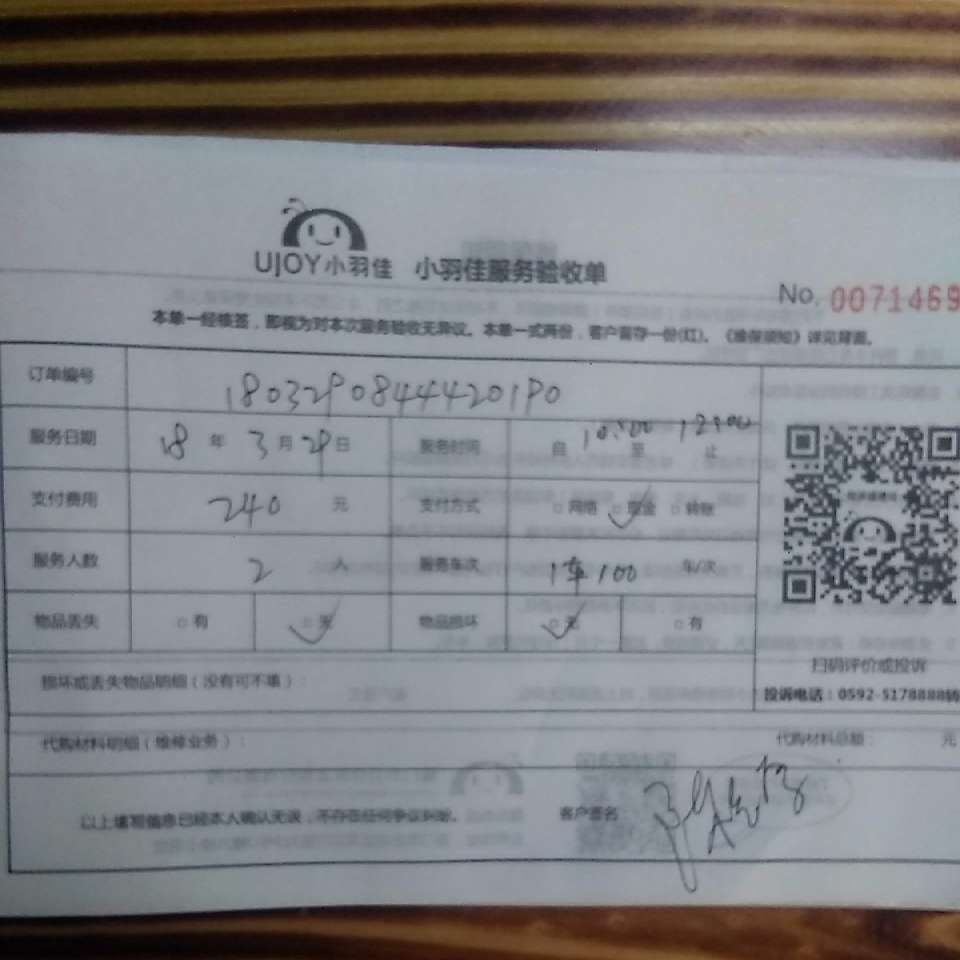 UJOY小羽佳 小羽佳服务验收单
No. 0071469
本单一经核签，即视为对本次服务验收无异议。本单一式两份，客户留存一份(红)。《维保须知》详见背面。
订单编号 18032908444420190
服务日期 18 年 3 月 29 日 服务时间 自 10:00 至 12:00 止
支付费用 240 元 支付方式 □网络 □现金 □转账
服务人数 2 人 服务车次 1车100 车/次
物品丢失 □有 □无 物品损坏 □无 □有
扫码评价或投诉
损坏或丢失物品明细（没有可不填）：
投诉电话：0592-5178888转
代购材料明细（维修业务）： 代购材料总额： 元
以上填写信息已经本人确认无误，不存在任何争议纠纷。 客户签名